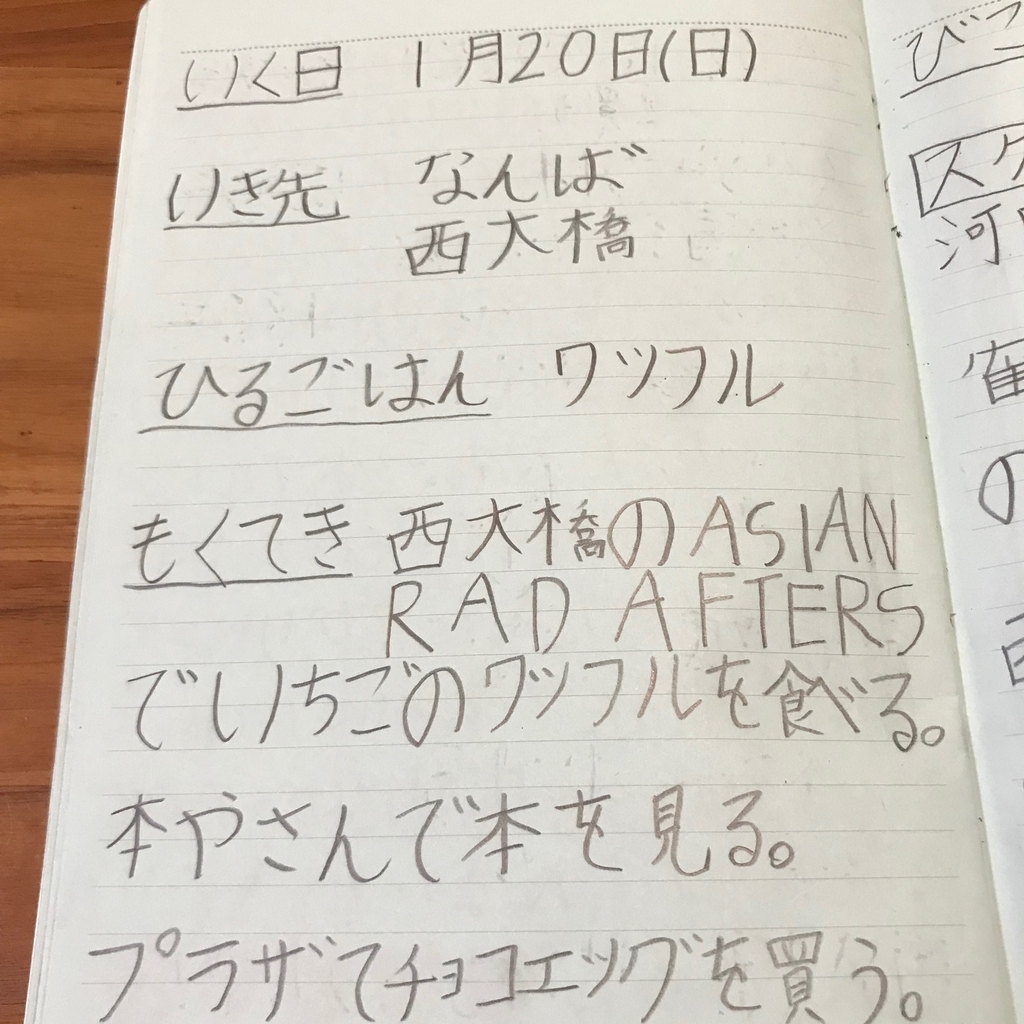 いく日 1月20日(日)
いき先 なんば
西大橋
ひるごはん ワッフル
もくてき 西大橋のASIAN
RAD AFTERS
でいちごのワッフルを食べる。
本やさんで本を見る。
プラザてチョコエッグを買う。
びこ
スケ
河
の